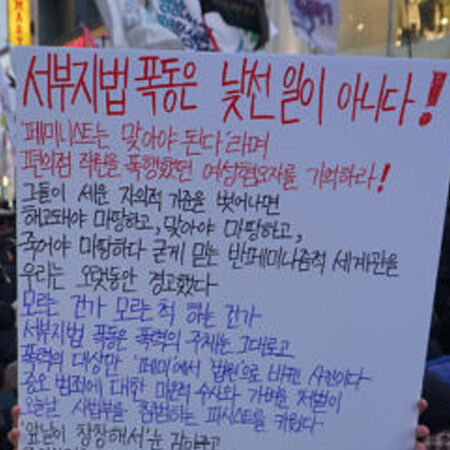 서부지법 폭동은 낯선 일이 아니다!
'페미니스트는 맞아야 된다'라며
편의점 직원을 폭행했던 여성혐오자를 기억하라!
그들이 세운 자의적 기준을 벗어나면
해고돼야 마땅하고, 맞아야 마땅하고,
죽어야 마땅하다 굳게 믿는 반페미니즘적 세계관을
우리는 오랫동안 경고했다
모르는 건가 모르는 척 하는 건가
서부지법 폭동은 폭력의 주체는 그대로고
폭력의 대상만 '페미'에서 '법원'으로 바뀐 사건이다
증오 범죄에 대한 미온적 수사와 가벼운 처벌이
오늘날 사법부를 협박하는 파시스트를 키웠다
'앞날이 창창해서' 눈 감아주고